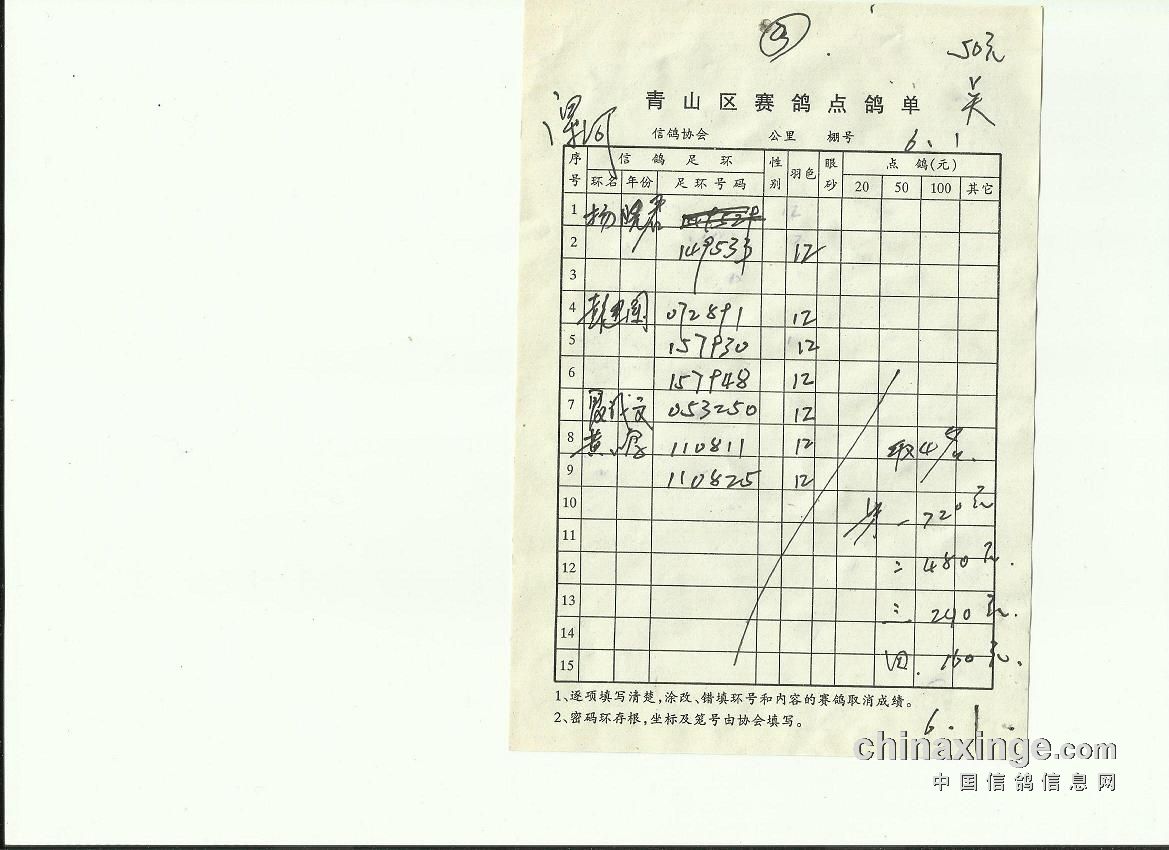 ③
50元
青山区赛鸽点鸽单
信鸽协会 公里 棚号
6.1
序号 信鸽足环 性别 羽色 眼砂 点鸽(元)
环名 年份 足环号码 20 50 100 其它
1 杨晓君
2 149533 12
3
4 072891 12
5 157930 12
6 157948 12
7 053250 12
8 110811 12 取4名.
9 110825 12
10 一 720元
11
12 二 480元.
13 三 240元.
14
15 四. 160元.
1、逐项填写清楚,涂改、错填环号和内容的赛鸽取消成绩。
2、密码环存根,坐标及笼号由协会填写。
6.1.
chinaxinge.com
中国信鸽信息网